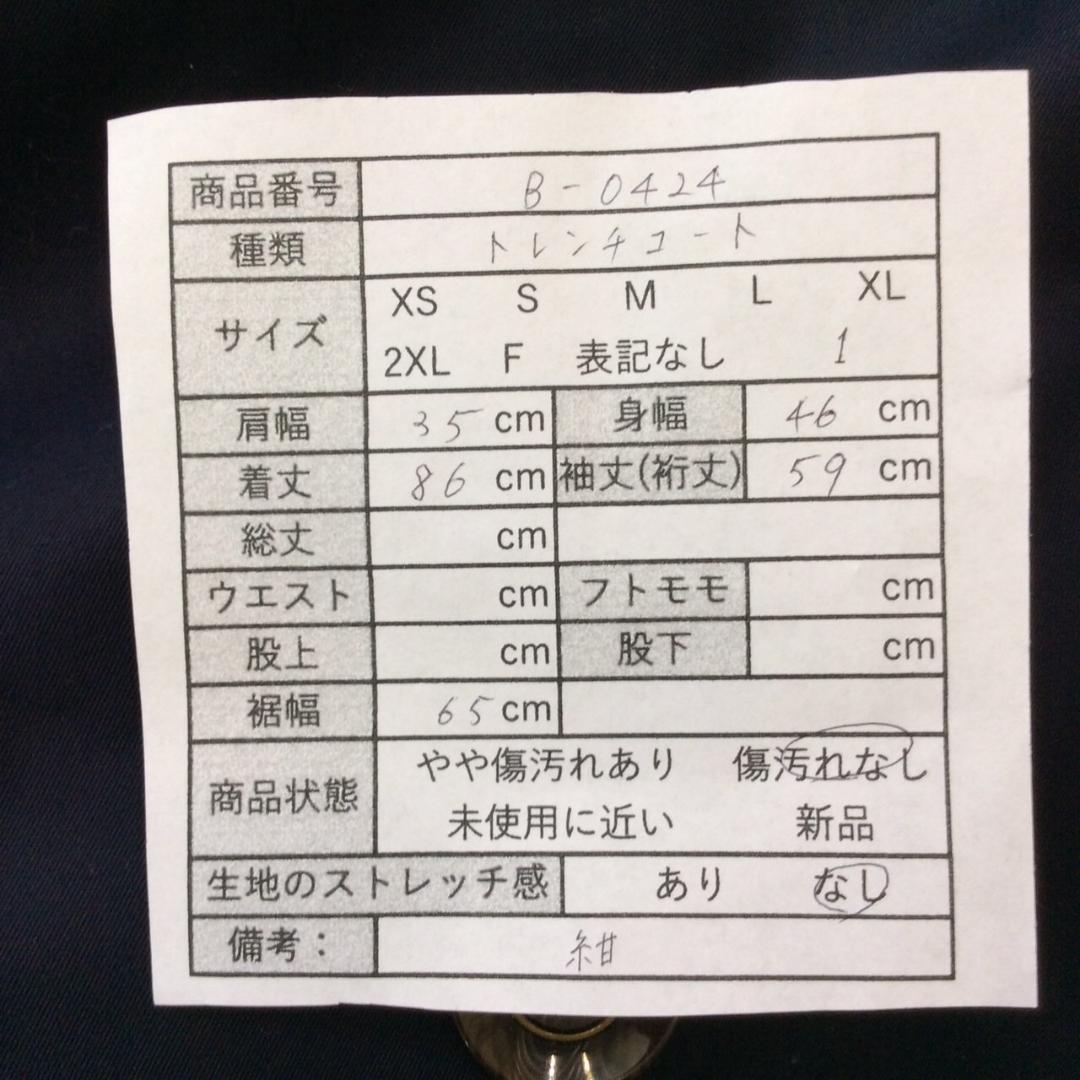 商品番号 B-0424
種類 トレンチコート
サイズ XS S M L XL
2XL F 表記なし 1
肩幅 35 cm 身幅 46 cm
着丈 86 cm 袖丈(裄丈) 59 cm
総丈 cm
ウエスト cm フトモモ cm
股上 cm 股下 cm
裾幅 65 cm
商品状態 やや傷汚れあり 傷汚れなし
未使用に近い 新品
生地のストレッチ感 あり なし
備考： 紺